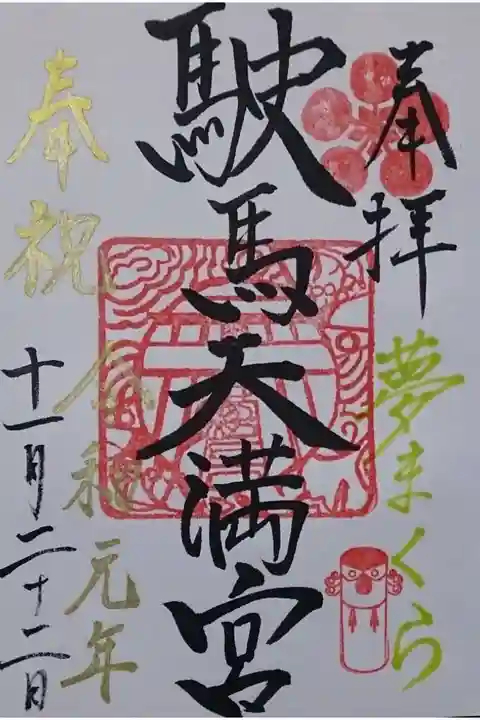 奉拝
夢まくら
駛馬天満宮
奉祝 令和元年
十一月二十二日